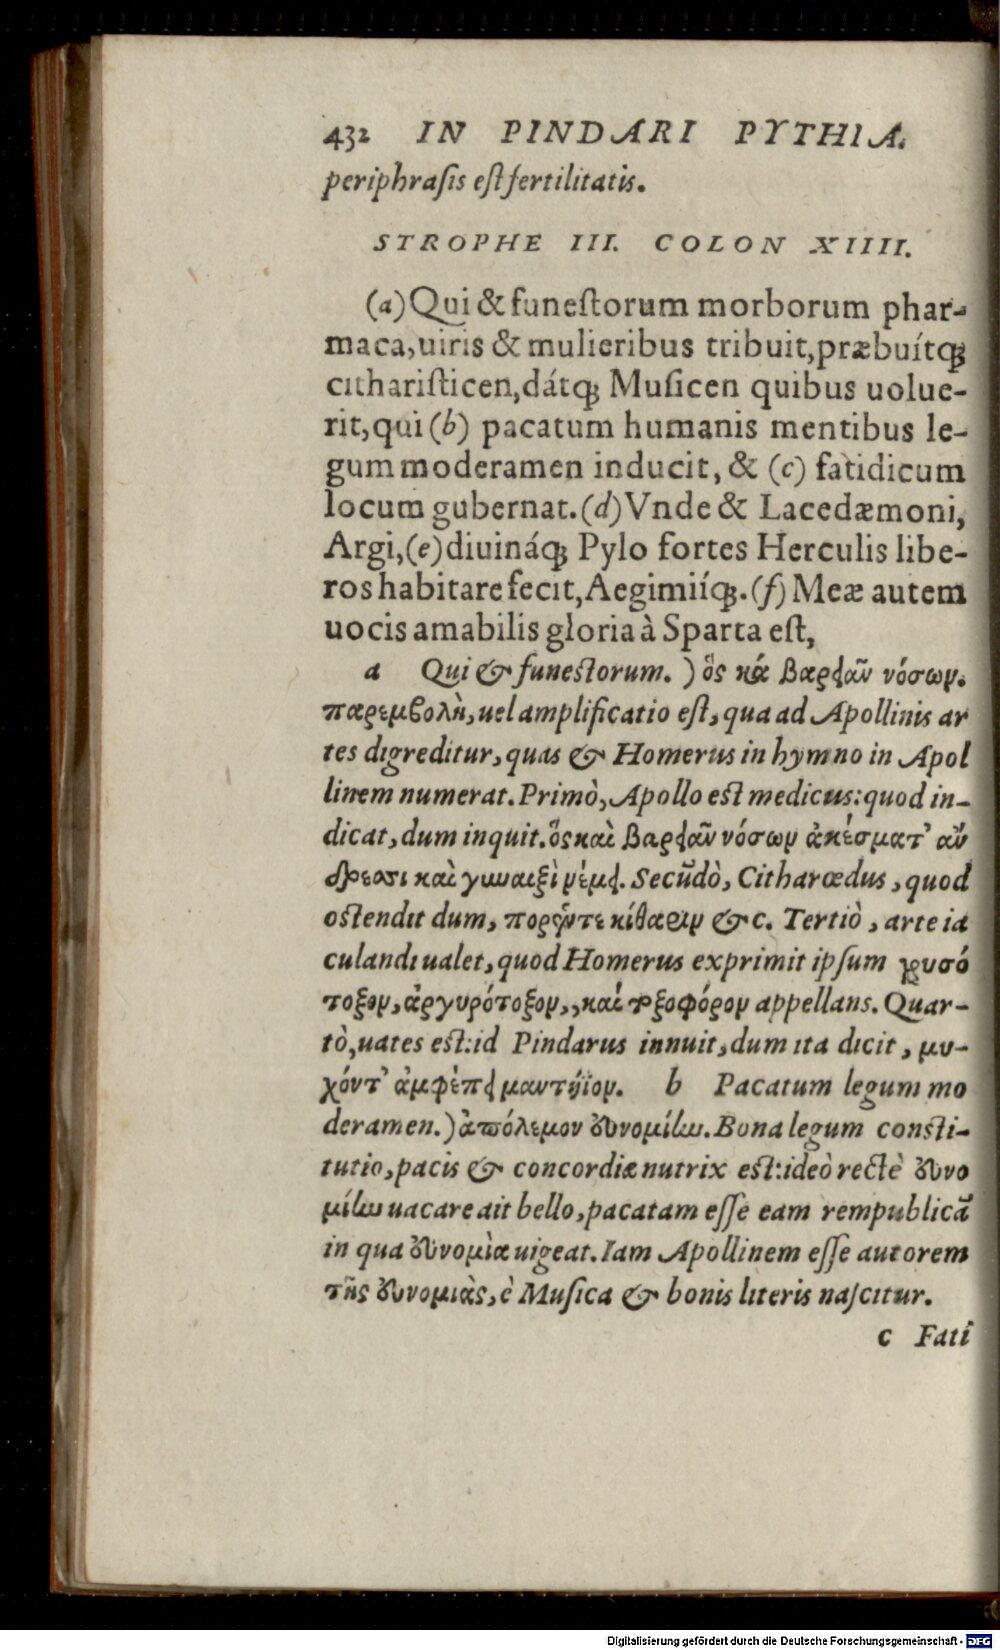 432 IN PINDARI PYTHIA.
periphrasis est fertilitatis.
STROPHE III. COLON XIIII.
(a) Qui & funestorum morborum phar-
maca, uiris & mulieribus tribuit, præbuítq;
citharisticen, dátq; Musicen quibus uolue-
rit, qui (b) pacatum humanis mentibus le-
gum moderamen inducit, & (c) fatidicum
locum gubernat. (d) Vnde & Lacedæmoni,
Argi, (e) diuináq; Pylo fortes Herculis libe-
ros habitare fecit, Aegimiíq;. (f) Meæ autem
uocis amabilis gloria à Sparta est,
a Qui & funestorum.) ὅς κά βαρειᾶν νόσων.
παρεμβολὴ, uel amplificatio est, qua ad Apollinis ar
tes digreditur, quas & Homerus in hymno in Apol
linem numerat. Primò, Apollo est medicus: quod in-
dicat, dum inquit. ὅς καὶ βαρειᾶν νόσων ἀκέσματ' ἄν
δρεσι καὶ γυναιξὶ νέμει. Secũdò, Citharœdus, quod
ostendit dum, πορέν τε κίθαριν &c. Tertiò, arte ia
culandi ualet, quod Homerus exprimit ipsum χρυσό
τοξον, ἀργυρότοξον,, καί τοξοφόρον appellans. Quar-
tò, uates est: id Pindarus innuit, dum ita dicit, μυ-
χόντ' ἀμφέπει μαντήϊον. b Pacatum legum mo
deramen.) ἀπόλεμον εὐνομίαν. Bona legum consti-
tutio, pacis & concordiæ nutrix est: ideò rectè εὐνο
μίαν uacare ait bello, pacatam esse eam rempublicã
in qua εὐνομὶα uigeat. Iam Apollinem esse autorem
τῆς εὐνομιὰς, è Musica & bonis literis nascitur.
c Fati
Digitalisierung gefördert durch die Deutsche Forschungsgemeinschaft - DFG